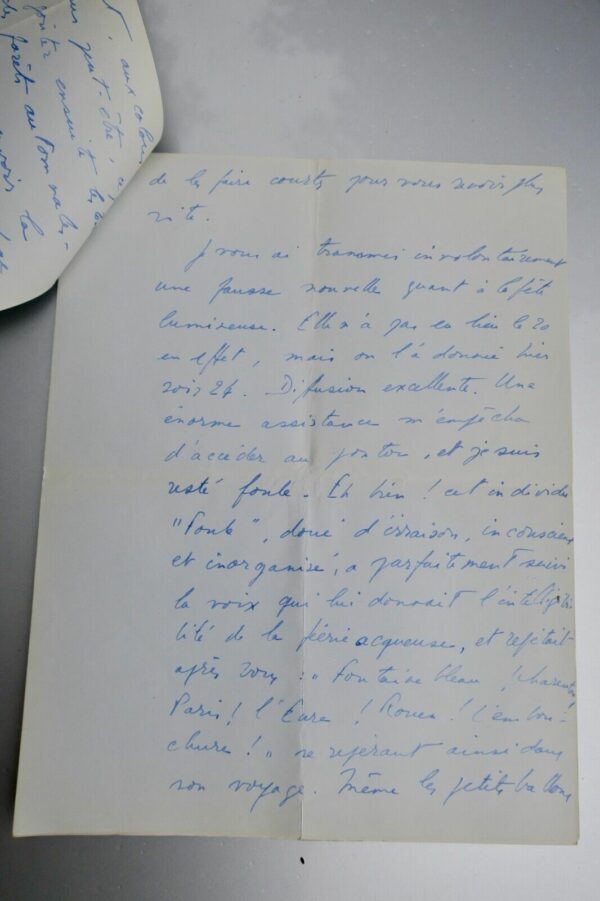 aux colou
peut-être,
goûter ensuite les
forêt au Tom
la
de les faire courts pour vous revoir plus
vite.
Je vous ai transmis involontairement
une fausse nouvelle quant à la fête
lumineuse. Elle n'a pas eu lieu le 20
en effet, mais on l'a donnée hier
soir 24. Difusion excellente. Une
énorme assistance m'empêcha
d'accéder au ponton, et je suis
resté foule. Eh bien ! cet individu
"Foule", doué d'irraison, inconscient
et inorganisé, a parfaitement suivi
la voix qui lui donnait l'intelligibi
lité de la féerie acqueuse, et répétait
après vous : "Fontainebleau ! Charenton !
Paris ! l'Eure ! Rouen ! l'embou-
chure ! " se repérant ainsi dans
son voyage. Même les petits ballons